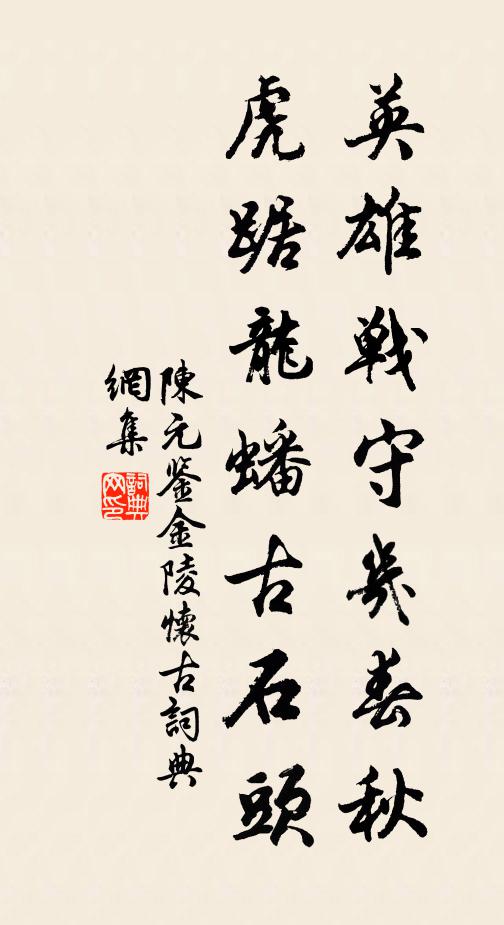 英雄戦守幾春秋
虎踞龍蟠古石頭
陳元鉴金陵懷古詞典
網集
詞典
网印